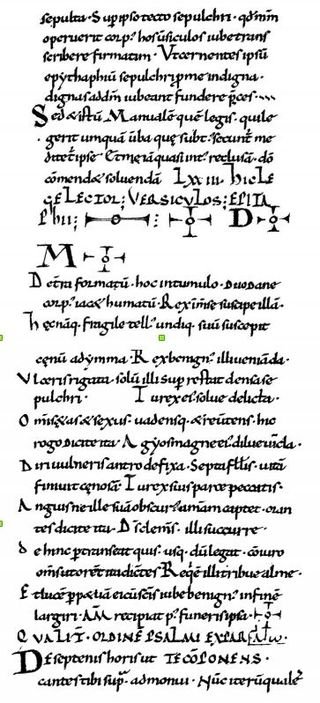 sepulta · Sup ipso tecto sepulchri · qđ m̄m
operuerit corp' hos ūsiculos iube trans
scribere firmatim · Vt cernentes ipsū
epythaphiū sepulchri p me indigna ·
dignas ad dm̄ iubeant fundere p̄ces ·
Sed & istū Manualē quē legis · qui le
gerit umquā ūba que subt' secunt' me
ditet' ipse Et me iā quasi int' reclusā · dō
cōmend& soluendā LXIII · HIC LE
GE LECTOR; VERSICVLOS; EPITA
PHII; D
M
De terra formatū · hoc in tumulo · Duodane
corp' iac& humatū · Rex im̄se suscipe illā ·
hec nāq; fragile tell' undiq; suū suscepit
cenū ad ymma · Rex benign' illi ueniā da ·
Vlceris rigata · solū illi sup restat densa se
pulchri · Tu rex ei' solue delicta ·
Om̄is &as & sexus · uadensq; & reūtens · hic
rogo dicite ita Agyos magne ei' dilue uīcla ·
Diri uulneris antro defixa · Septa fellis · uitā
finiuit cenosā · Tu rex suis parce peccatis ·
Anguis ne ille suā obscur' animam captet · oran
tes dicite ita · Ds̄ clem̄s · illi succurre
de hinc p transeat quis · usq; dū legat · coniuro
om̄s ut orent ita dictes Requiē illi tribue alme ·
Et lucē p p&uā ei cū scīs iube benign' in finē
largiri · AM̄ recipiat p' funeris ipsa ·
QVALIT̄ · ORDINĒ PSALMI EX PAR
De septenis horis ut TE CŌPONENS ·
cantes tibi sup̄ · admonui · Nūc iterū qualit'